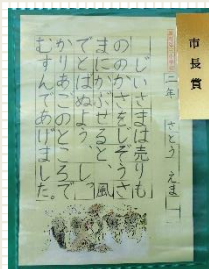 市長賞
二年 さとう えま
じいさまは売りも
ののかさをじぞうさ
まにかぶせると、風
でとばぬよう、しっ
かりあごのところで
むすんであげました。